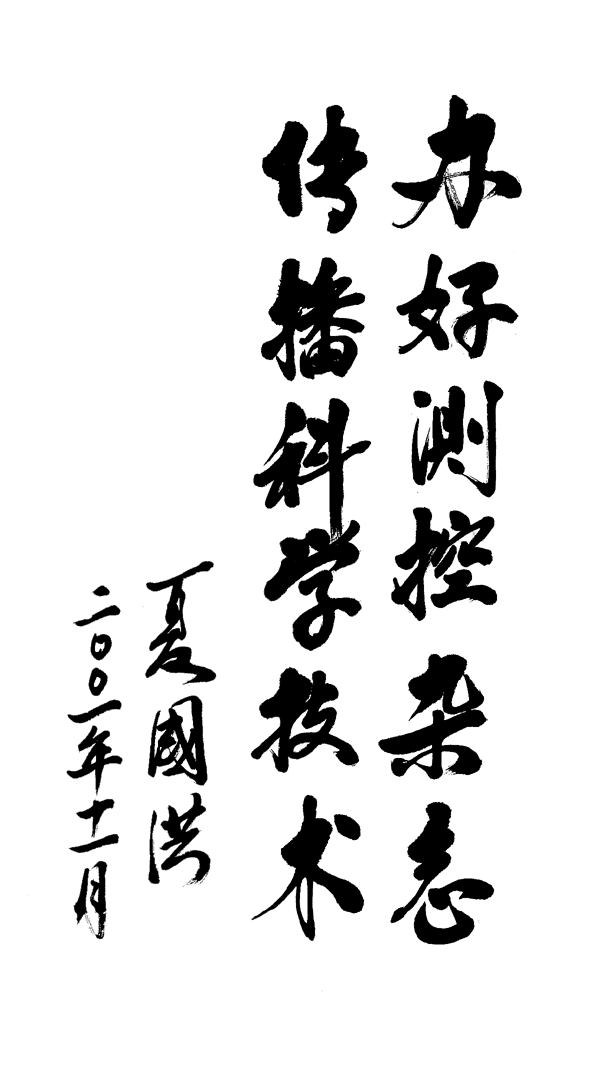 办好测控杂志
传播科学技术
夏國洪
二〇〇一年十一月